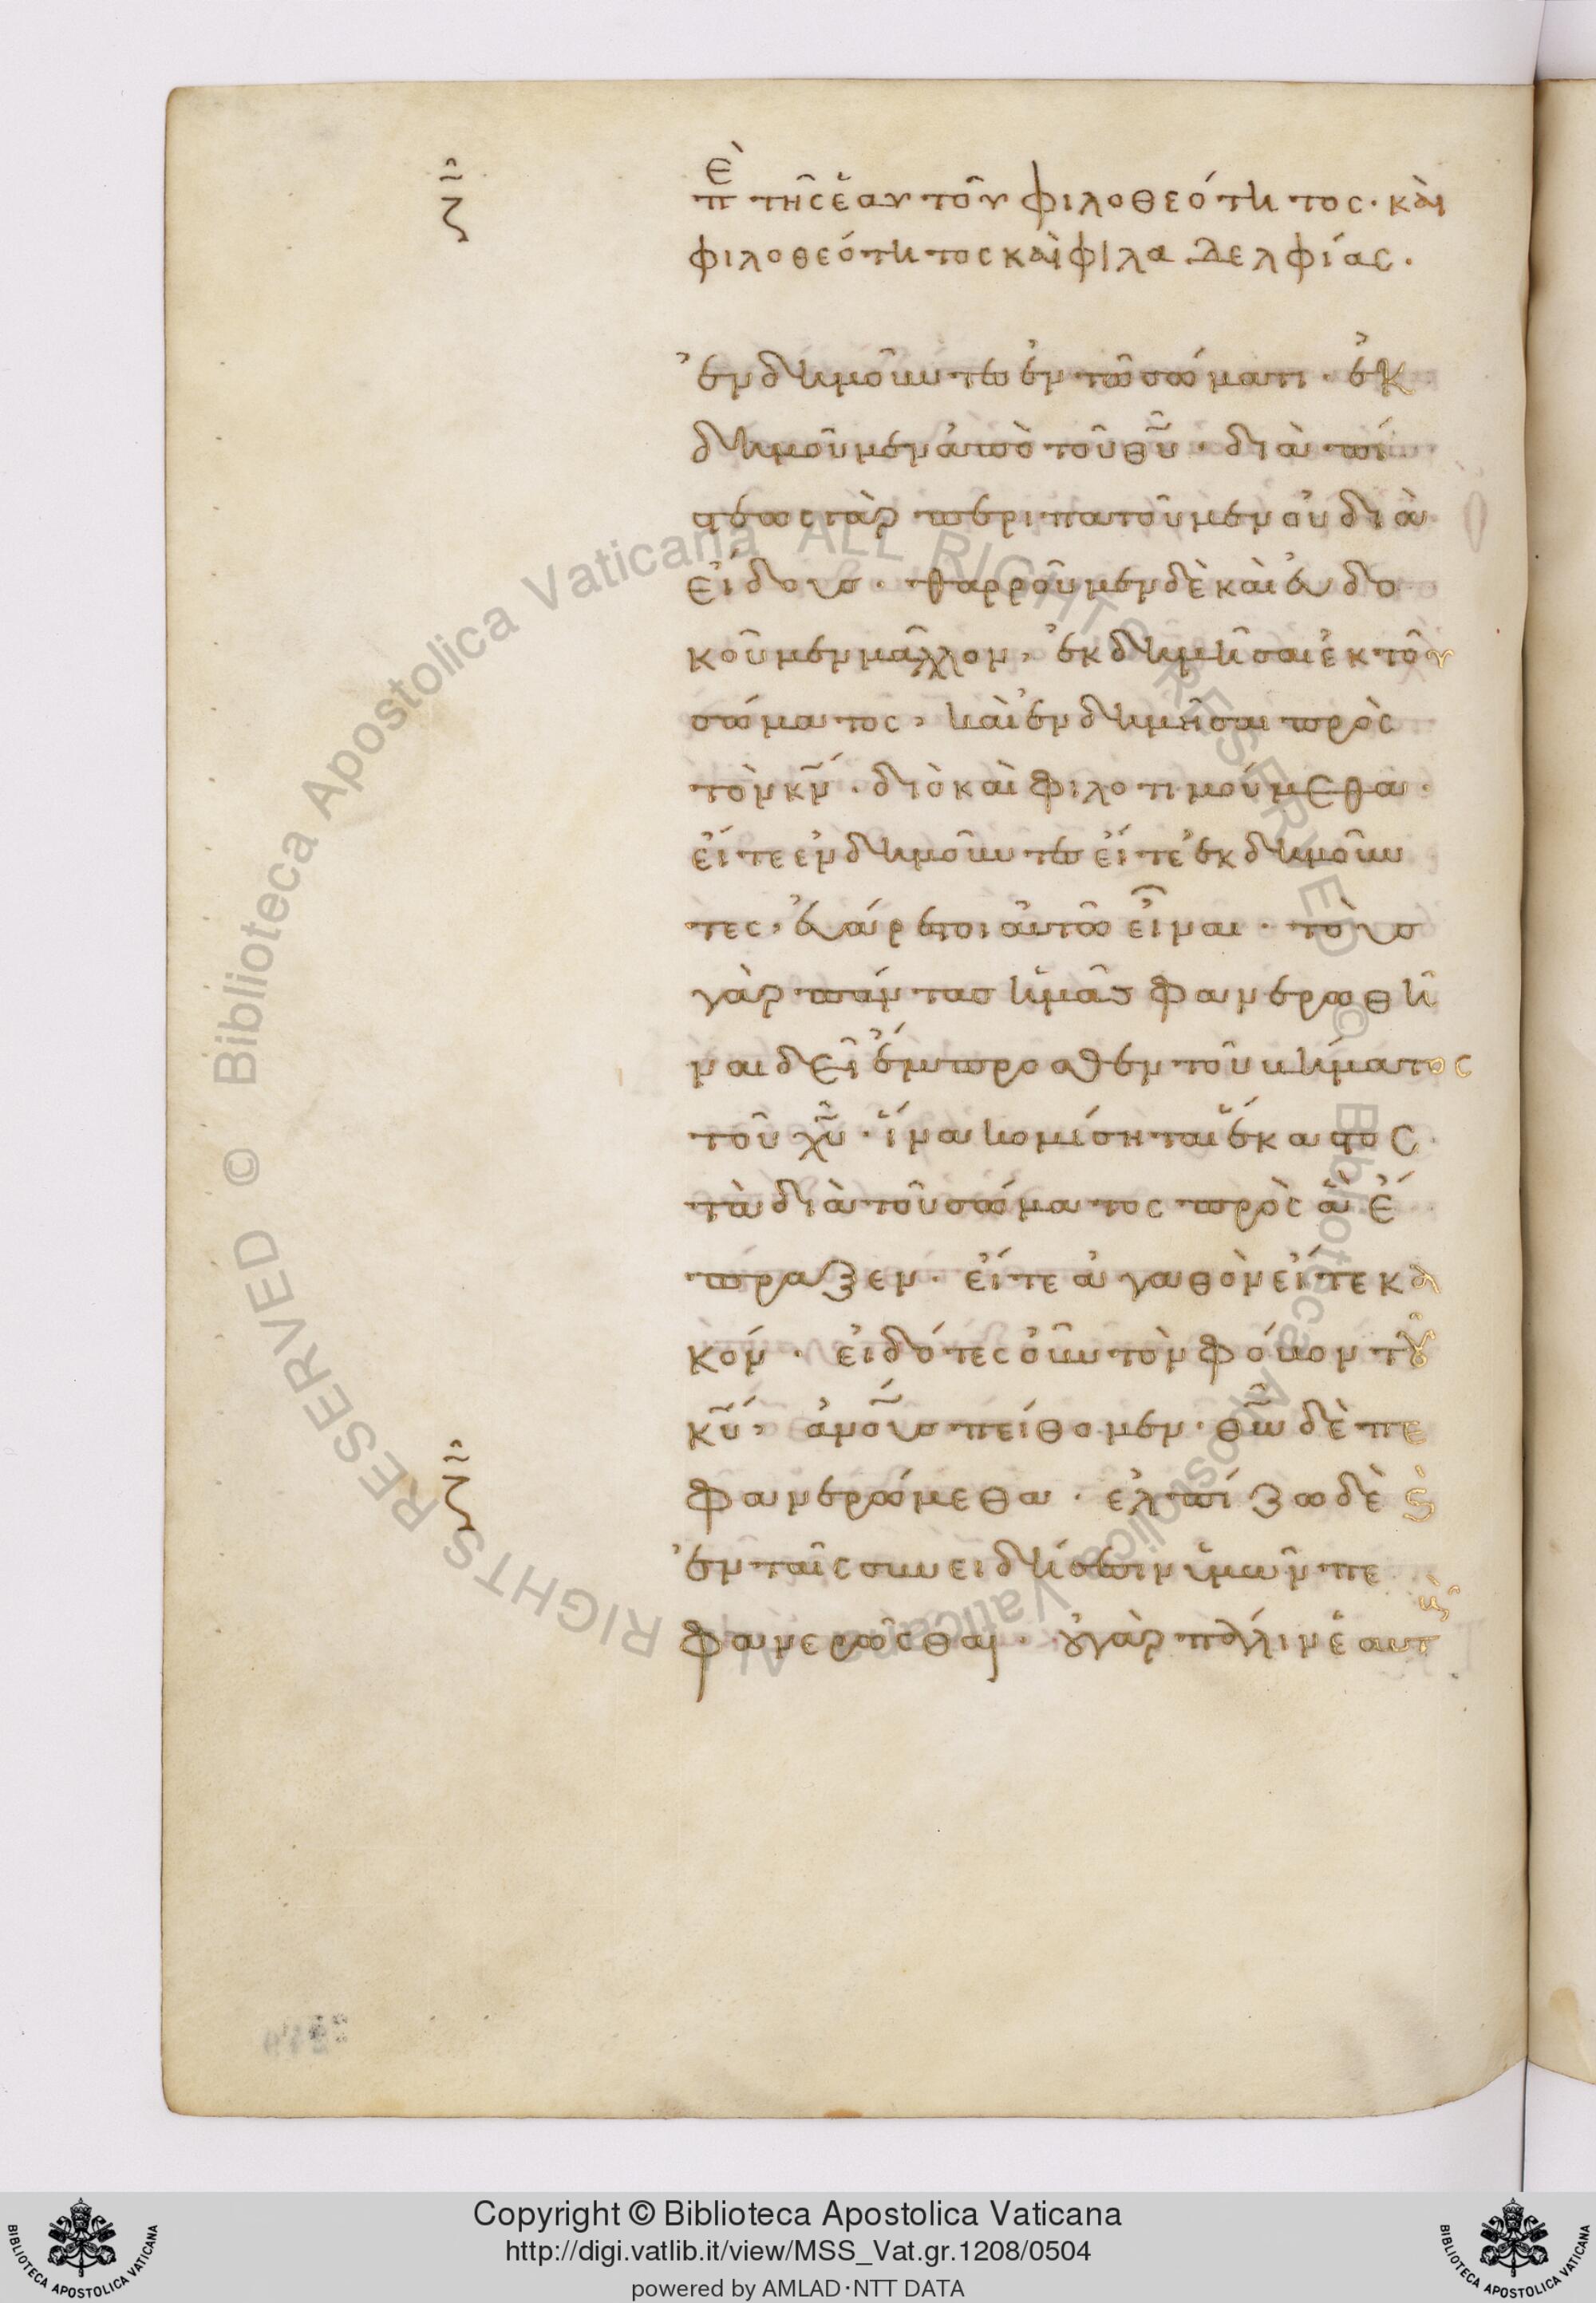 ζ
Πὲ τῆς ἑαυτοῦ φιλοθεότητος · καὶ
φιλοθεότητος καὶ φιλαδελφίας ·
ἐνδημοῦντες ἐν τῶ σώματι · ἐκ
δημοῦμεν ἀπὸ τοῦ θῦ · διὰ πί
στεως γὰρ περιπατοῦμεν οὐ διὰ
εἴδους · θαρροῦμεν δὲ καὶ εὐδο
κοῦμεν μᾶλλον, ἐκδημῆσαι ἐκ τοῦ
σώματος, καὶ ἐνδημῆσαι πρὸς
τὸν κν · διὸ καὶ φιλοτιμούμεθα ·
εἴτε ἐνδημοῦντες εἴτε ἐκδημοῦν
τες, εὐάρεστοι αὐτῶ εἶναι · τοὺς
γὰρ πάντας ἡμᾶς φανερωθῆ
ναι δεῖ ἔμπροσθεν τοῦ βήματος
τοῦ χῦ · ἵνα κομίσηται ἕκαστος
τὰ διὰ τοῦ σώματος πρὸς ἃ ἔ
πραξεν · εἴτε ἀγαθὸν εἴτε κα
κόν · εἰδότες οὖν τὸν φόβον τοῦ
κῦ, ἀνοὺς πείθομεν · θῶ δὲ πε
ζ
φανερώμεθα · ἐλπίζω δὲ καὶ
ἐν ταῖς συνειδήσεσιν ὑμῶν πε
φανερῶσθαι · οὐ γὰρ πάλιν ἑαυτοὺς
Copyright © Biblioteca Apostolica Vaticana
http://digi.vatlib.it/view/MSS_Vat.gr.1208/0504
powered by AMLAD·NTT DATA
BIBLIOTECA APOSTOLICA VATICANA
BIBLIOTECA APOSTOLICA VATICANA
© Biblioteca Apostolica Vaticana ALL RIGHTS RESERVED © Biblioteca Apostolica Vaticana ALL RIGHTS RESERVED